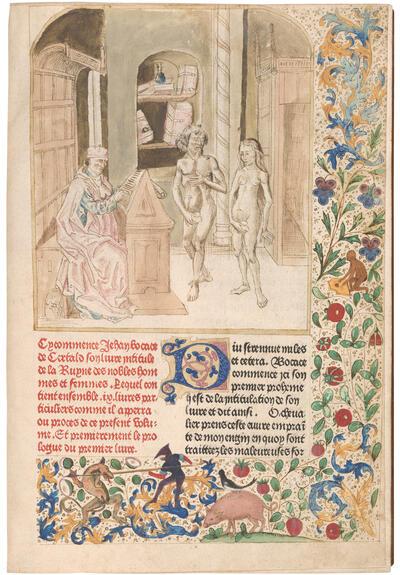 Cy commence Jehan bocace
de Certald son livre intitule
de la Ruyne des nobles hom
mes et femmes. Lequel con
tient ensemble .ix. livres par
ticuliers comme il apperra
ou proces de ce present volu-
me. Et premierement le pro
logue du premier livre.
Diu strennue miles
et cetera. Bocace
commence icy son
premier prohème
q est de la intitulation de son
livre et dit ainsi. O cheva
lier prens ceste œuvre emprain
te de mon engin en quoy sont
traittiez les maleureuses for